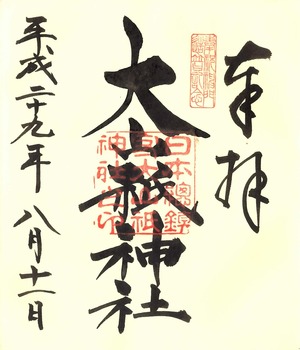 奉拝
大山祇神社
日本總鎮
守大山祇
神社之印
平成二十九年 八月十一日